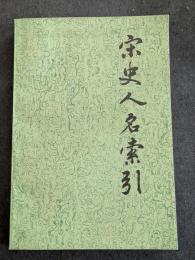 宋史人名索引